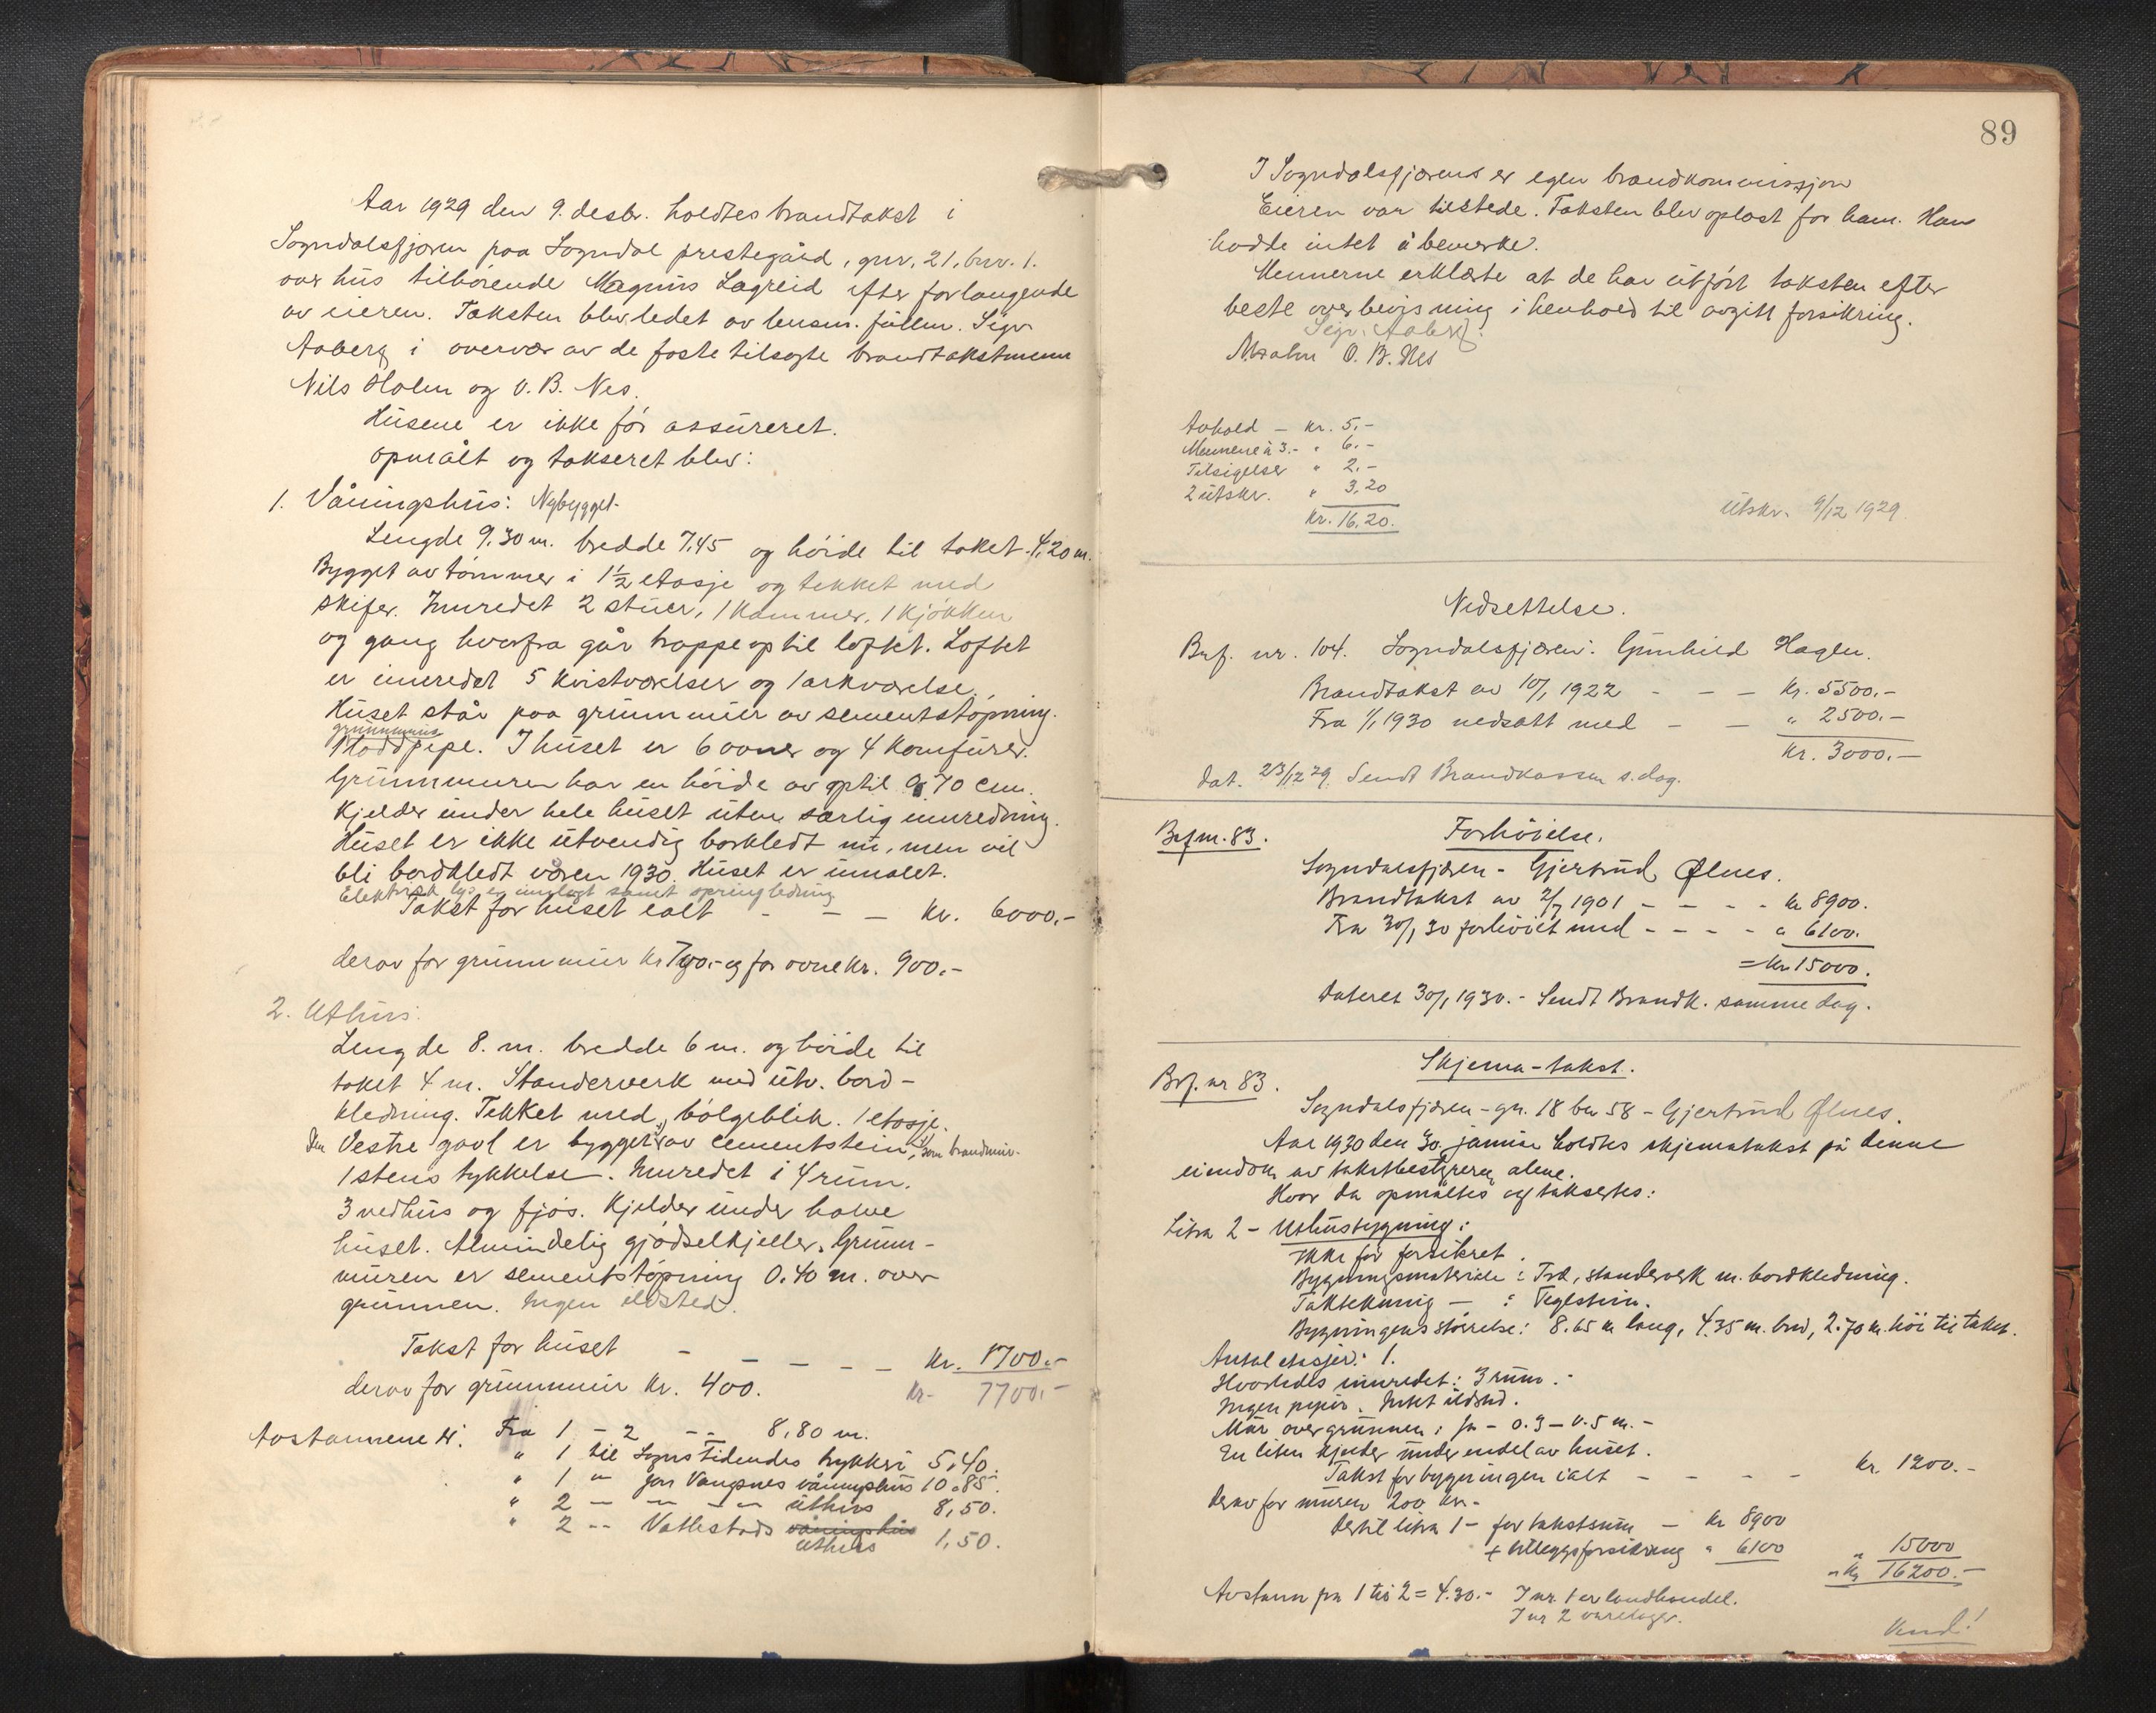 Aar 1929 den 9. desbr. holdtes brandtakst i
Sogndalsfjøren paa Sogndal prestegård, gnr. 21, bnr. 1.
over hus tilhørende Magnus Lagreid efter forlangende
av eieren. Taksten blev ledet av lensm. fullm. Sigv.
Aaberg i overvær av de faste tilsagte brandtakstmenn
Nils Holen og O. B. Nes.
Husene er ikke før assureret.
Opmålt og takseret blev:
1. Våningshus: Nybygget.
Lengde 9.30 m. bredde 7.45 og høide til taket 4,20 m.
Bygget av tømmer i 1½ etasje og tekket med
skifer. Innredet 2 stuer, 1 kammer, 1 kjøkken
og gang hvorfra går trappe op til loftet. Loftet
er innredet 5 kvistværelser og 1 arkværelse.
Huset står paa grunnmur av sementstøpning.
pipe. I huset er 6 ovner og 4 komfurer.
Grunnmuren har en høide av optil 70 cm.
Kjelder under hele huset uten særlig innredning.
Huset er ikke utvendig borkledt nu, men vil
bli bordkledt våren 1930. Huset er inmalet.
Elektrisk lys er innlagt samt springledning
Takst for huset ialt - - - kr. 6000,-
derav for grunnmur kr. 700,- og for ovne kr. 900,-
2. Uthus:
Lengde 8. m. bredde 6 m. og høide til
taket 4 m. Standerverk med utv. bord-
kledning. Tekket med bølgeblik. 1 etasje.
Den Vestre gavl er bygget av cementstein, som brandmur.
1 stens tykkelse. Innredet i 4 rum.
3 vedhus og fjøs. Kjelder under halve
huset. Almindelig gjødselkjeller. Grunn-
muren er sementstøpning 0.40 m. over
grunnen. Ingen ildsted.
Takst for huset - - - - - kr. 1700.-
derav for grunnmur kr. 400. kr. 7700.-
Avstannene er: Fra 1 - 2 -- 8,80 m.
" 1 til Sogns Tidendes trykkeri 5,40.
" 1 " Jon Vangsnes våningshus 10,85.
" 2 - - - - uthus 8,50.
" 2 -- Vattestads våningshus 1,50.
uthus
89
I Sogndalsfjørens er egen brandkommissjon
Eieren var tilstede. Taksten blev oplæst for ham. Han
hadde intet å bemerke.
Mennerne erklærte at de har utført taksten efter
beste overbevisning i henhold til avgitt forsikring.
Sigv. Aaberg.
O. B. Nes
Avhold - kr. 5,-
Mennene à 3.- " 6.-
Tilsigelser " 2.-
2 utskr. " 3,20
kr. 16,20.
Utskr. 9/12 1929.
Nedsettelse.
Brf. nr. 104. Sogndalsfjøren: Gunhild Hagen.
Brandtakst av 10/1 1922 - - - kr. 5500.-
Fra 1/1 1930 nedsatt med - - " 2500.-
kr. 3000.-
dat. 23/12 29. Sendt Brandkassen s. dag.
Brf. nr. 83. Forhøielse.
Sogndalsfjøren - Gjertrud Ølnes.
Brandtakst av 2/7 1901 - - - - kr 8900.
Fra 30/1 30 forhøiet med - - - - " 6100.
= kr 15000.
Dateret 30/1 1930. - Sendt Brandk. samme dag.
Skjema-takst.
Brf. nr 83.
Sogndalsfjøren - gn. 18 bn 58 - Gjertrud Ølnes.
Aar 1930 den 30. januar holdtes skjematakst på denne
eiendom av takstbestyreren alene.
Hvor da opmåltes og taksertes:
Litra 2 - Uthusbygning:
Ikke før forsikret.
Bygningsmateriale: Træ, standerverk m. bordkledning.
Taktekning - : Teglstein.
Bygningens størrelse: 8.65 m lang, 4.35 m. bred, 2.70 m. høi til taket.
Antal etasjer: 1.
Hvorledes innredet: 3 rum. -
Ingen piper. Intet ildsted.
Mur over grunnen: fra - 0.3 - 0.5 m. -
En liten kjelder under endel av huset.
Takst for bygningen ialt - - - - kr. 1200.-
Derav for muren 200 kr.-
Dertil litra 1 - før takstsum - kr 8900
+ tilleggsforsikring " 6100 " 15000
= kr 16200.-
Avstann fra 1 til 2 = 4.30.- I nr. 1 er landhandel.
I nr 2 varelager.
Vend!